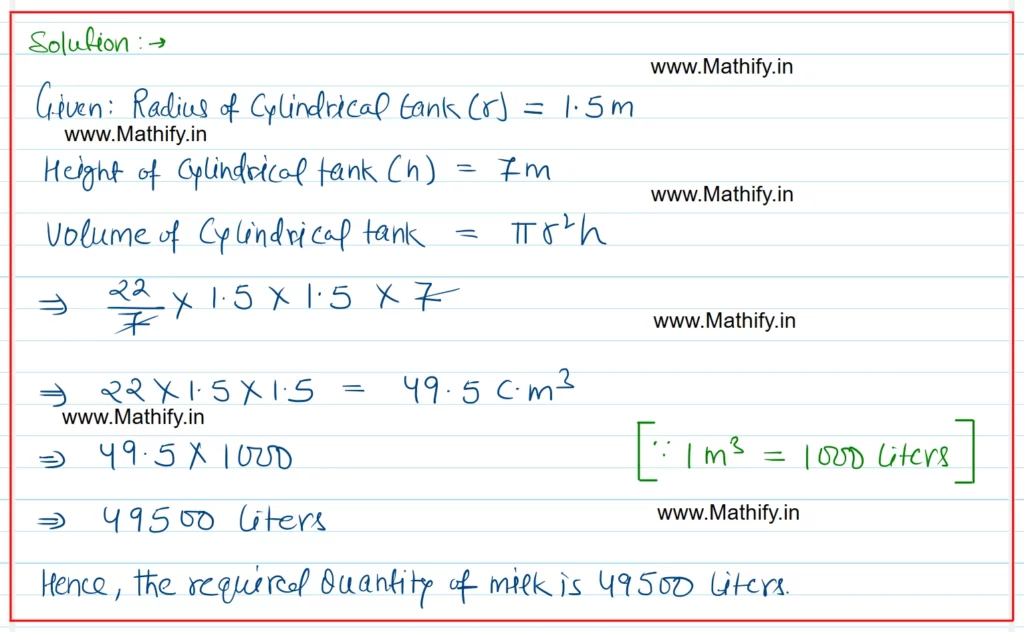 Solution :→
www.Mathify.in
Given: Radius of Cylindrical tank (r) = 1.5 m
www.Mathify.in
Height of Cylindrical tank (h) = 7m
www.Mathify.in
Volume of Cylindrical tank = πr²h
⇒ 22/7 × 1.5 × 1.5 × 7
www.Mathify.in
⇒ 22 × 1.5 × 1.5 = 49.5 C.m³
www.Mathify.in
⇒ 49.5 × 1000 [∵ 1 m³ = 1000 liters]
⇒ 49500 liters
www.Mathify.in
Hence, the required Quantity of milk is 49500 liters.